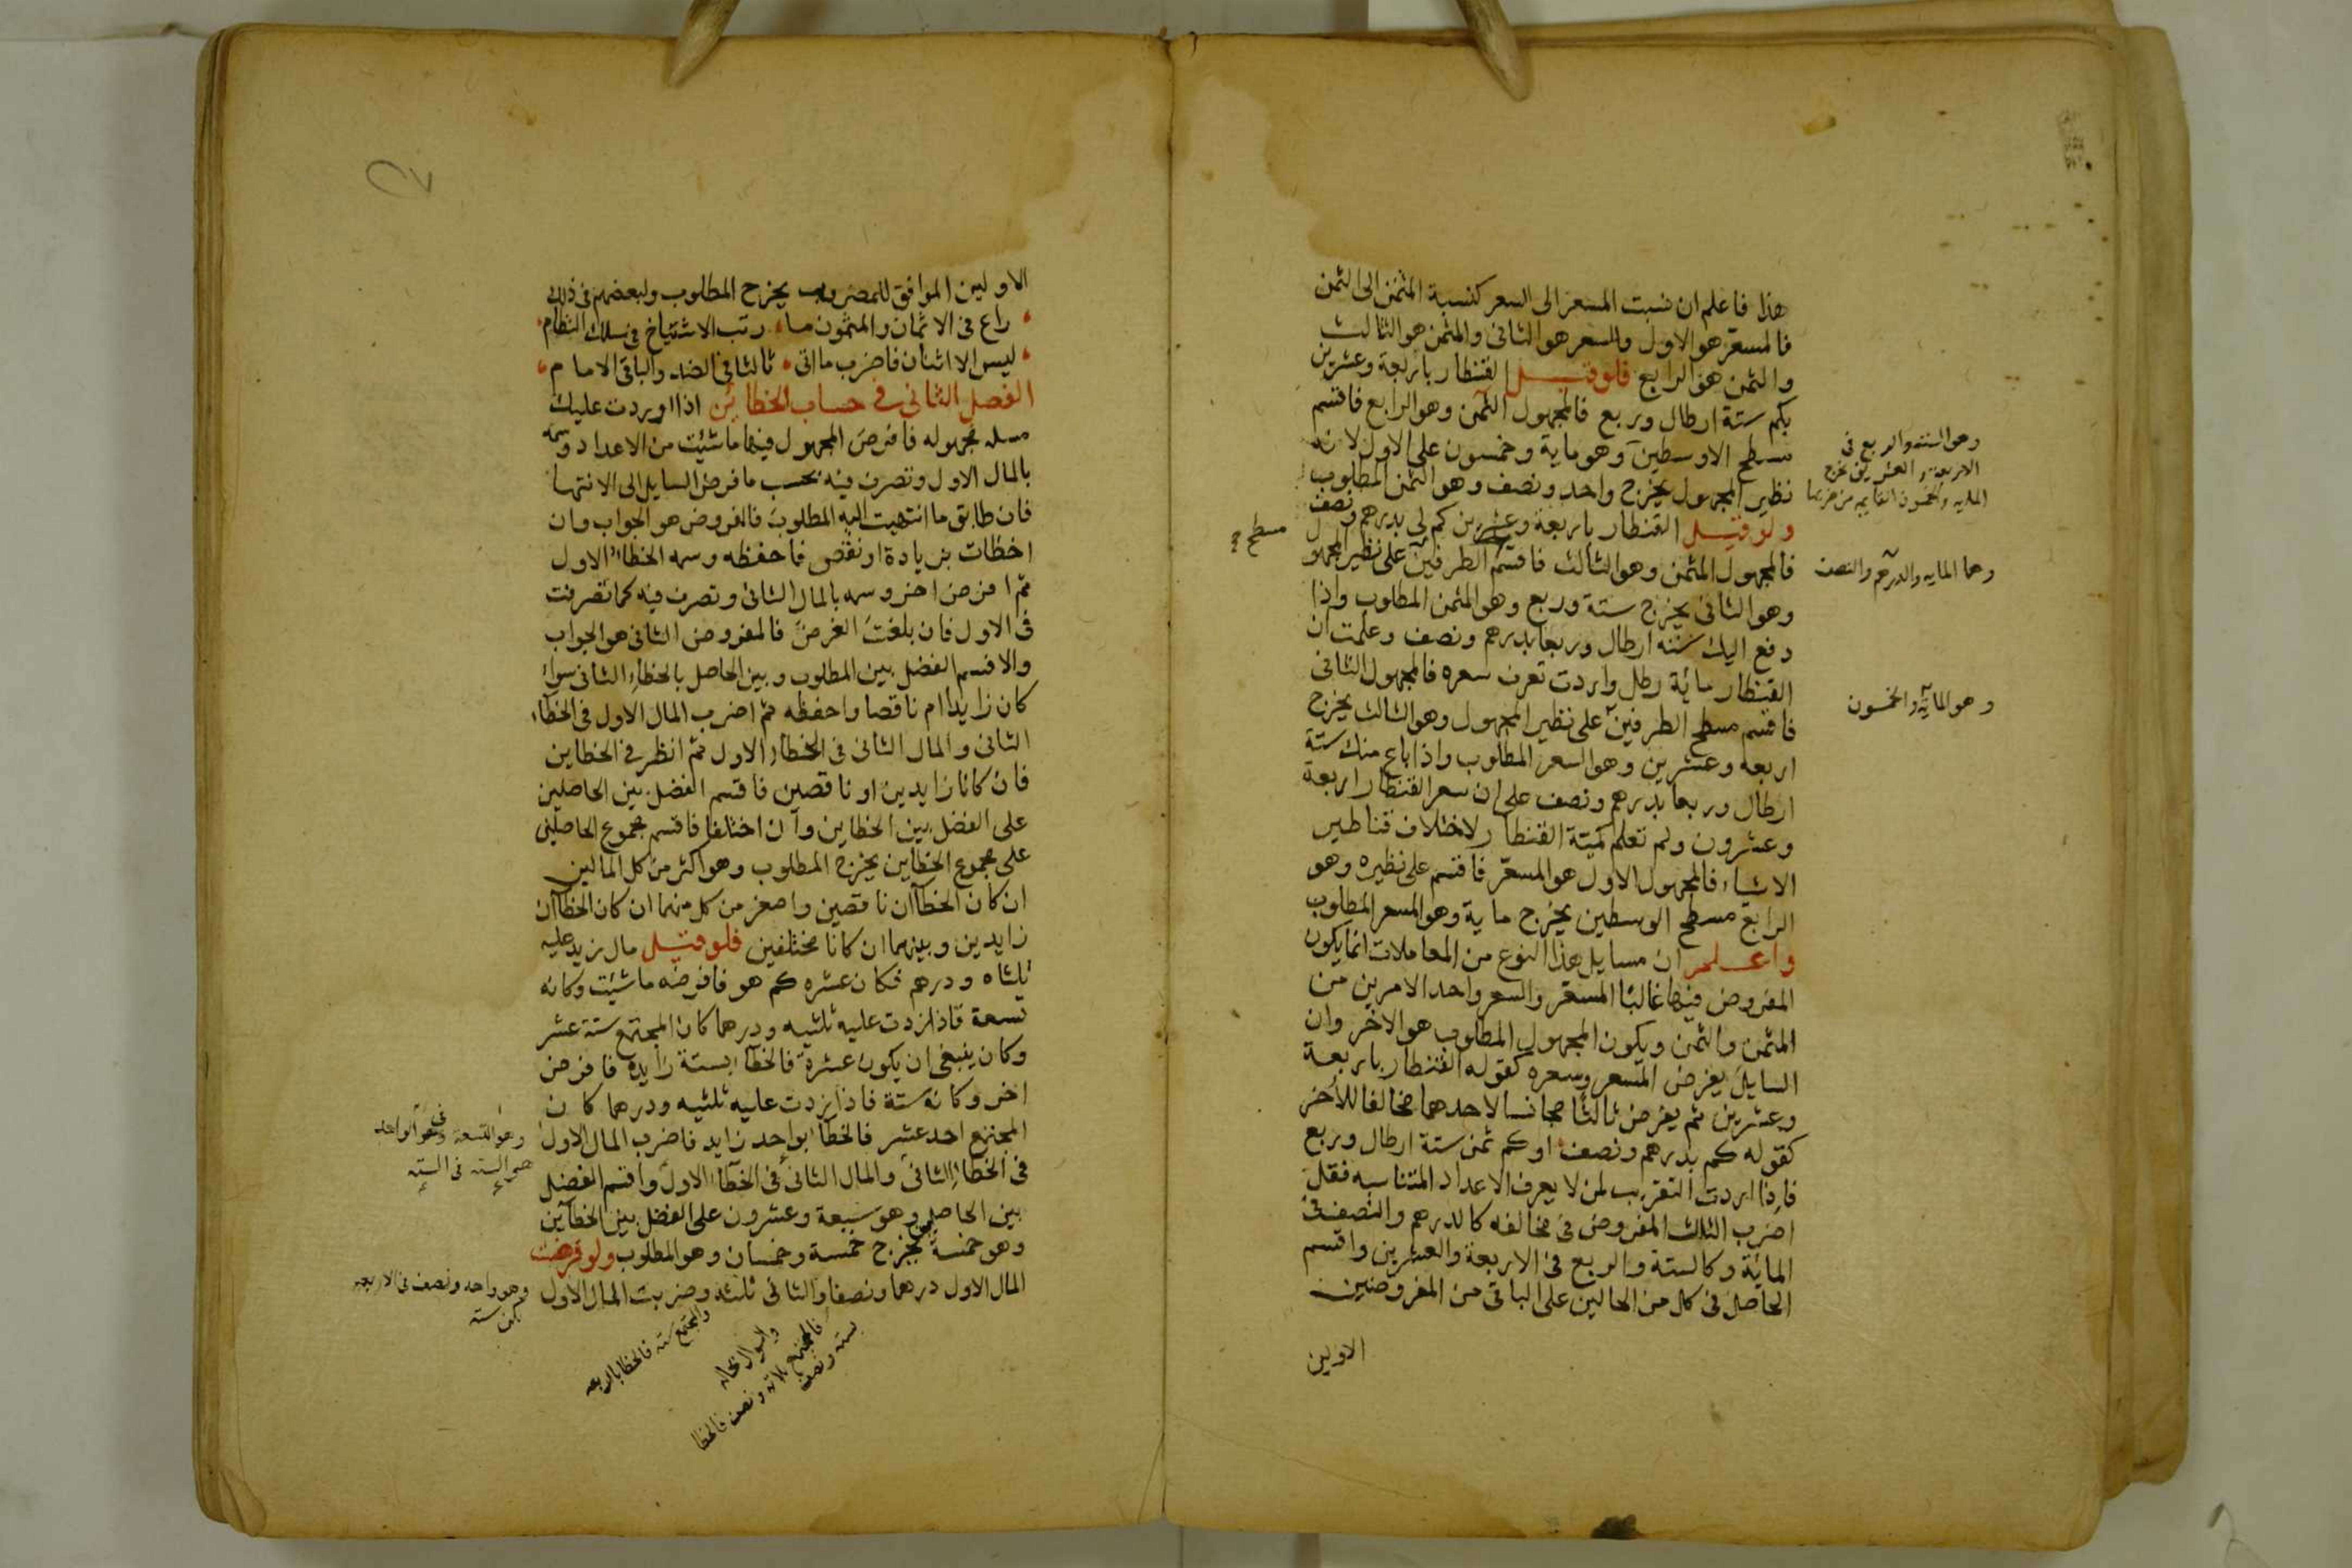 هذا فاعلم ان نسبت المسعر الى السعر كنسبة المثمن الى الثمن
فالمسعّر هو الاول والسعر هو الثانى والمثمن هو الثالث
والثمن هو الرابع فلو قيل القنطار باربعة وعشرين
بكم ستة ارطال وربع فالمجهول الثمن وهو الرابع فاقسم
مسطح الاوسطين وهو ماية وخمسون على الاول لانه
نظير المجهول يخرج واحد ونصف وهو الثمن المطلوب
ولو قيل القنطار باربعة وعشرين كم لي بدرهم ونصف
فالمجهول المثمن وهو الثالث فاقسم الطرفين على نظير المجهول
وهو الثانى يخرج ستة وربع وهو المثمن المطلوب واذا
دفع اليك ستة ارطال وربعا بدرهم ونصف وعلمت ان
القنطار مائة رطل واردت تعرف سعره فالمجهول الثانى
فاقسم مسطح الطرفين على نظير المجهول وهو الثالث يخرج
اربعه وعشرين وهو السعر المطلوب واذا باع منك ستة
ارطال وربعا بدرهم ونصف على ان سعر القنطار اربعة
وعشرون ولم تعلم كمية القنطار لاختلاف قناطير
الاشياء فالمجهول الاول هو المسعّر فاقسم على نظيره وهو
الرابع مسطح الوسطين يخرج ماية وهو المسعر المطلوب
واعلم ان مسايل هذا النوع من المعاملات انما يكون
المفروض فيها غالبًا المسعّر والسعر واحد الامرين من
المثمن والثمن ويكون المجهول المطلوب هو الاخر وان
السايل يفرض المسعر وسعره كقوله القنطار باربعة
وعشرين ثم يفرض ثالثًا مجانسا لاحدهما مخالفا للاخر
كقوله كم بدرهم ونصف او كم ثمن ستة ارطال وربع
فاذا اردت التقريب لمن لا يعرف الاعداد المتناسبه فقل
اضرب الثالث المفروض فى مخالفه كالدرهم والنصف فى
المائة وكالستة والربع فى الاربعة والعشرين واقسم
الحاصل فى كل من الحالين على الباقى من المفروضين
الاولين
وهو الستة والربع فى
الاربعة والعشرين يخرج
الماية والخمسون القايمه من ضربهما
مسطح
وهما الماية والدرهم والنصف
وهو الماية والخمسون
الاولين الموافق للمضروب يخرج المطلوب ولبعضهم فى ذلك
راع فى الاثمان والمثمون ما رتب الاشياخ فى سلك النظام
ليس الا اثنان فاضرب ما اتى ثالثا فى الضد والباقى الامام
الفصل الثانى فى حساب الخطائين اذا اوردت عليك
مسله مجهوله فافرض المجهول فيها ما شئت من الاعداد وسمه
بالمال الاول وتصرف فيه بحسب ما فرض السايل الى الانتها
فان طابق ما انتهيت اليه المطلوب فالفروض هو الجواب وان
اخطات بزيادة او نقص فاحفظه وسمه الخطاء الاول
ثم افرض اخر وسمه بالمال الثانى وتصرف فيه كما تصرفت
فى الاول فان بلغت الغرض فالمفروض الثانى هو الجواب
والا فسم الفضل بين المطلوب وبين الحاصل بالخطاء الثانى سواء
كان زايدا ام ناقصا واحفظه ثم اضرب المال الاول فى الخطاء
الثانى والمال الثانى فى الخطاء الاول ثم انظر فى الخطاين
فان كانا زايدين او ناقصين فاقسم الفضل بين الحاصلين
على الفضل بين الخطاين وان اختلفا فاقسم مجموع الحاصلين
على مجموع الخطاين يخرج المطلوب وهو اكثر من كل المالين
ان كان الخطاآن ناقصين واصغر من كل منهما ان كان الخطاآن
زايدين وبينهما ان كانا مختلفين فلو قيل مال زيد عليه
ثلثاه ودرهم فكان عشره كم هو فافرضه ما شئت وكانه
تسعة فاذا زدت عليه ثلثيه ودرهما كان المجتمع ستة عشر
وكان ينبغى ان يكون عشرة فالخطا بستة زايدة فافرض
اخر وكانه ستة فاذا زدت عليه ثلثيه ودرهما كان
المجتمع احد عشر فالخطا بواحد زايد فاضرب المال الاول
فى الخطاء الثانى والمال الثانى فى الخطاء الاول واقسم الفضل
بين الحاصلين وهو سبعة وعشرون على الفضل بين الخطائين
وهو خمسة يخرج خمسة وخمسان وهو المطلوب ولو فرضت
المال الاول درهما ونصفا والثانى ثلثه وضربت المال الاول
وهو التسعة فى وهو الواحد
الستة فى الستة
وهو واحد ونصف فى الاربعه
يكن ستة
والمجتمع ستة فالخطا باربعه
والسوال بحاله
فالمجتمع ثلاثة ونصف فالخطا
بستة ونصف